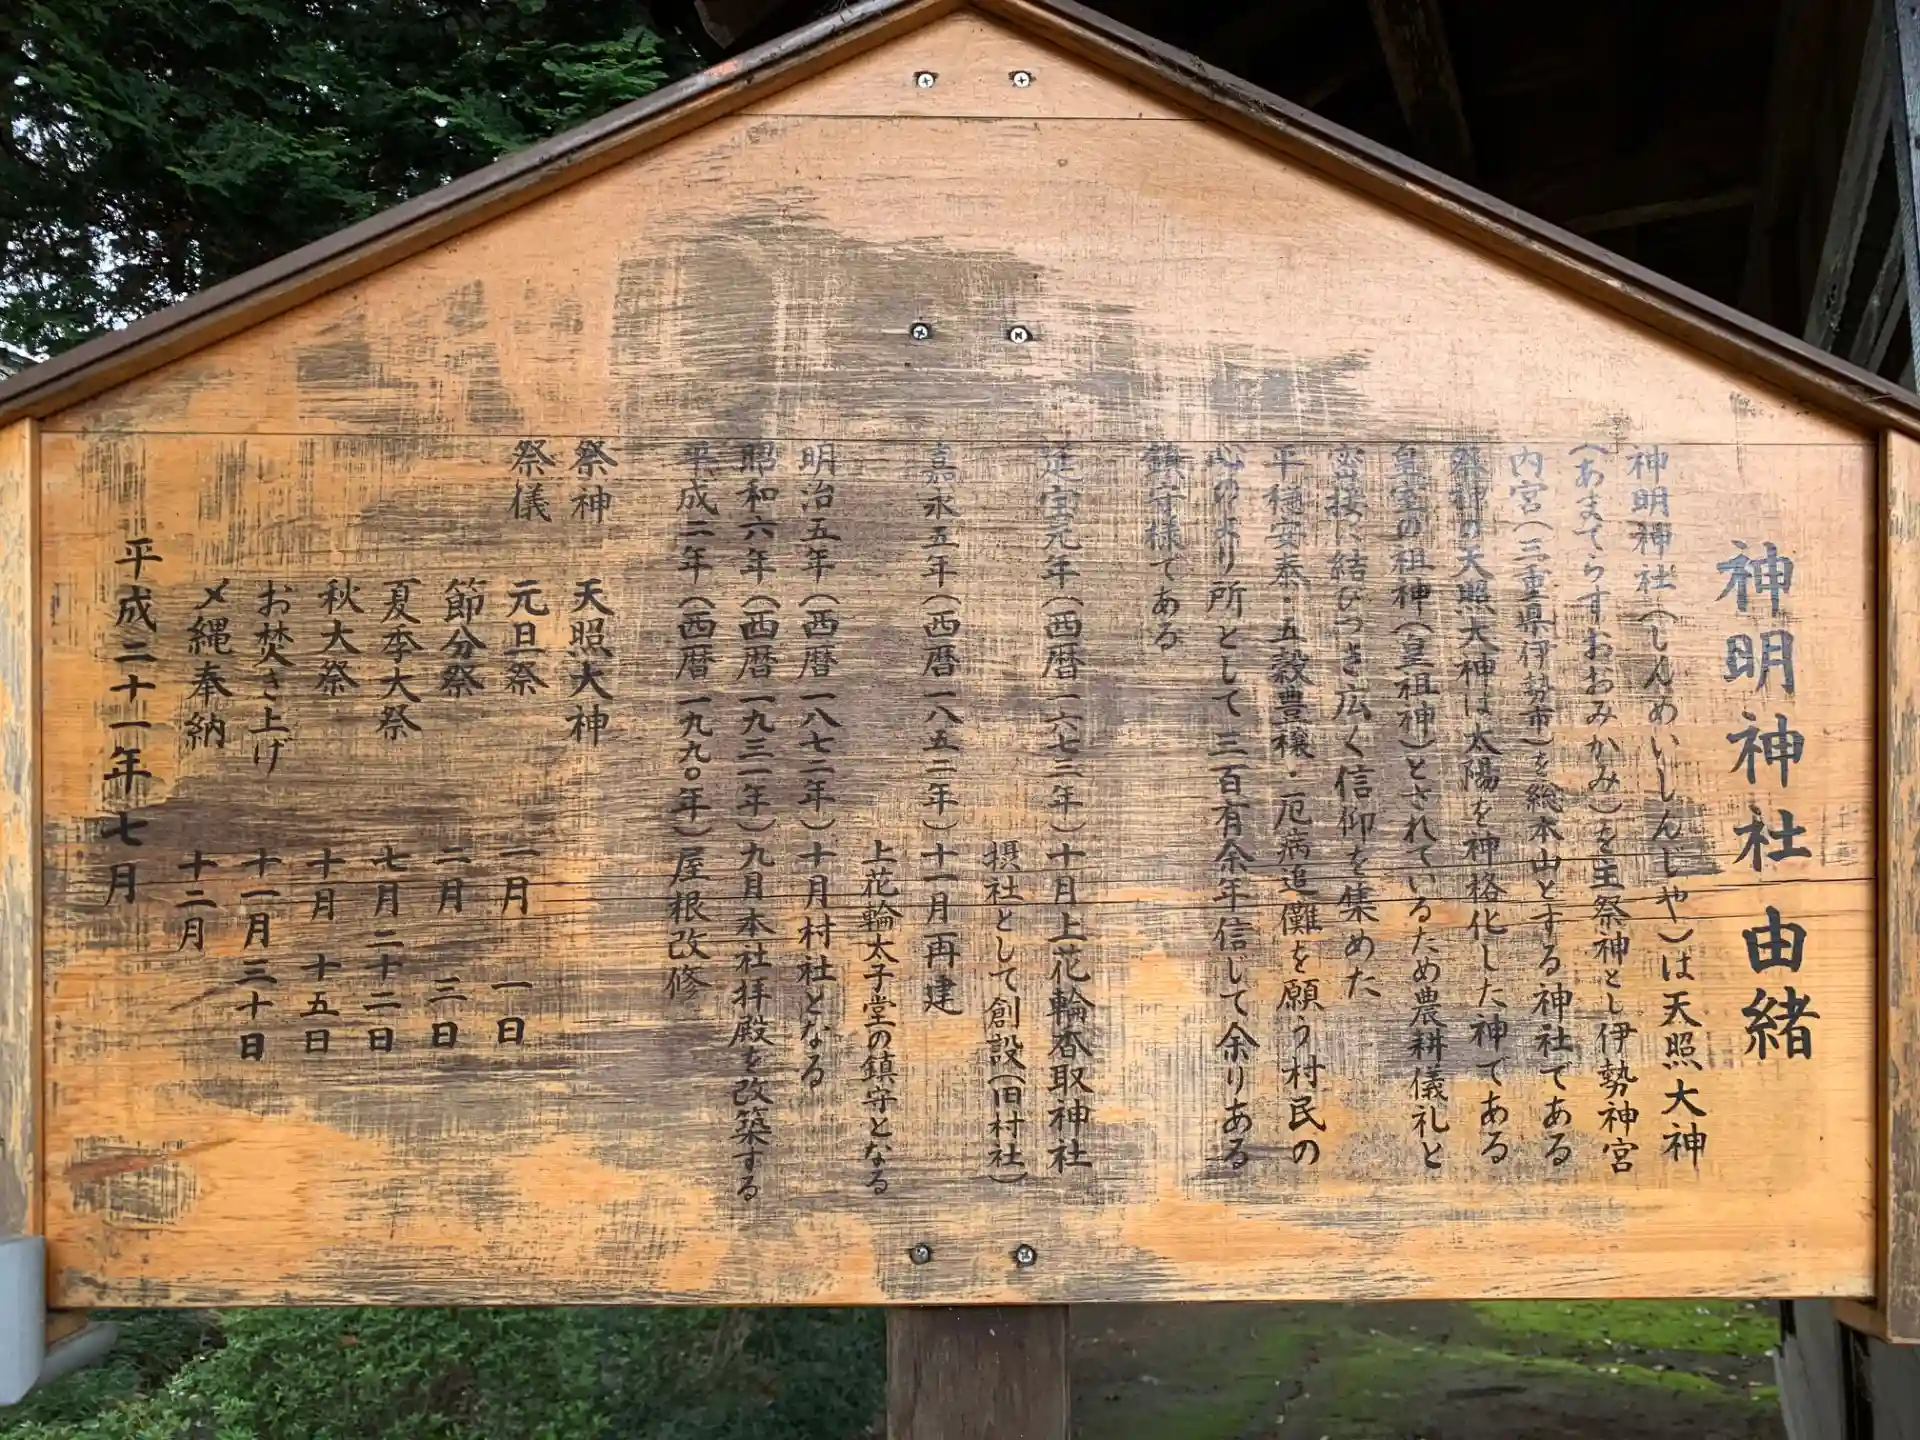 神明神社 由緒
神明神社(しんめいしんじゃ)は天照大神
(あまてらすおおみかみ)を主祭神とし伊勢神宮
内宮(三重県伊勢市)を総本山とする神社である
祭神の天照大神は太陽を神格化した神である
皇室の祖神(皇祖神)とされているため農耕儀礼と
密接に結びつき広く信仰を集めた
平穏安泰・五穀豊穣・厄病追儺を願う村民の
心のより所として三百有余年信じて余りある
鎮守様である
延宝元年(西暦一六七三年)十月上花輪香取神社
摂社として創設(旧村社)
嘉永五年(西暦一八五二年)十一月再建
上花輪太子堂の鎮守となる
明治五年(西暦一八七二年)十月村社となる
昭和六年(西暦一九三一年)九月本社拝殿を改築する
平成二年(西暦一九九〇年)屋根改修
祭神 天照大神
祭儀 元旦祭 一月 一日
節分祭 二月 三日
夏季大祭 七月二十二日
秋大祭 十月 十五日
お焚き上げ 十一月三十日
〆縄奉納 十二月
平成二十一年七月